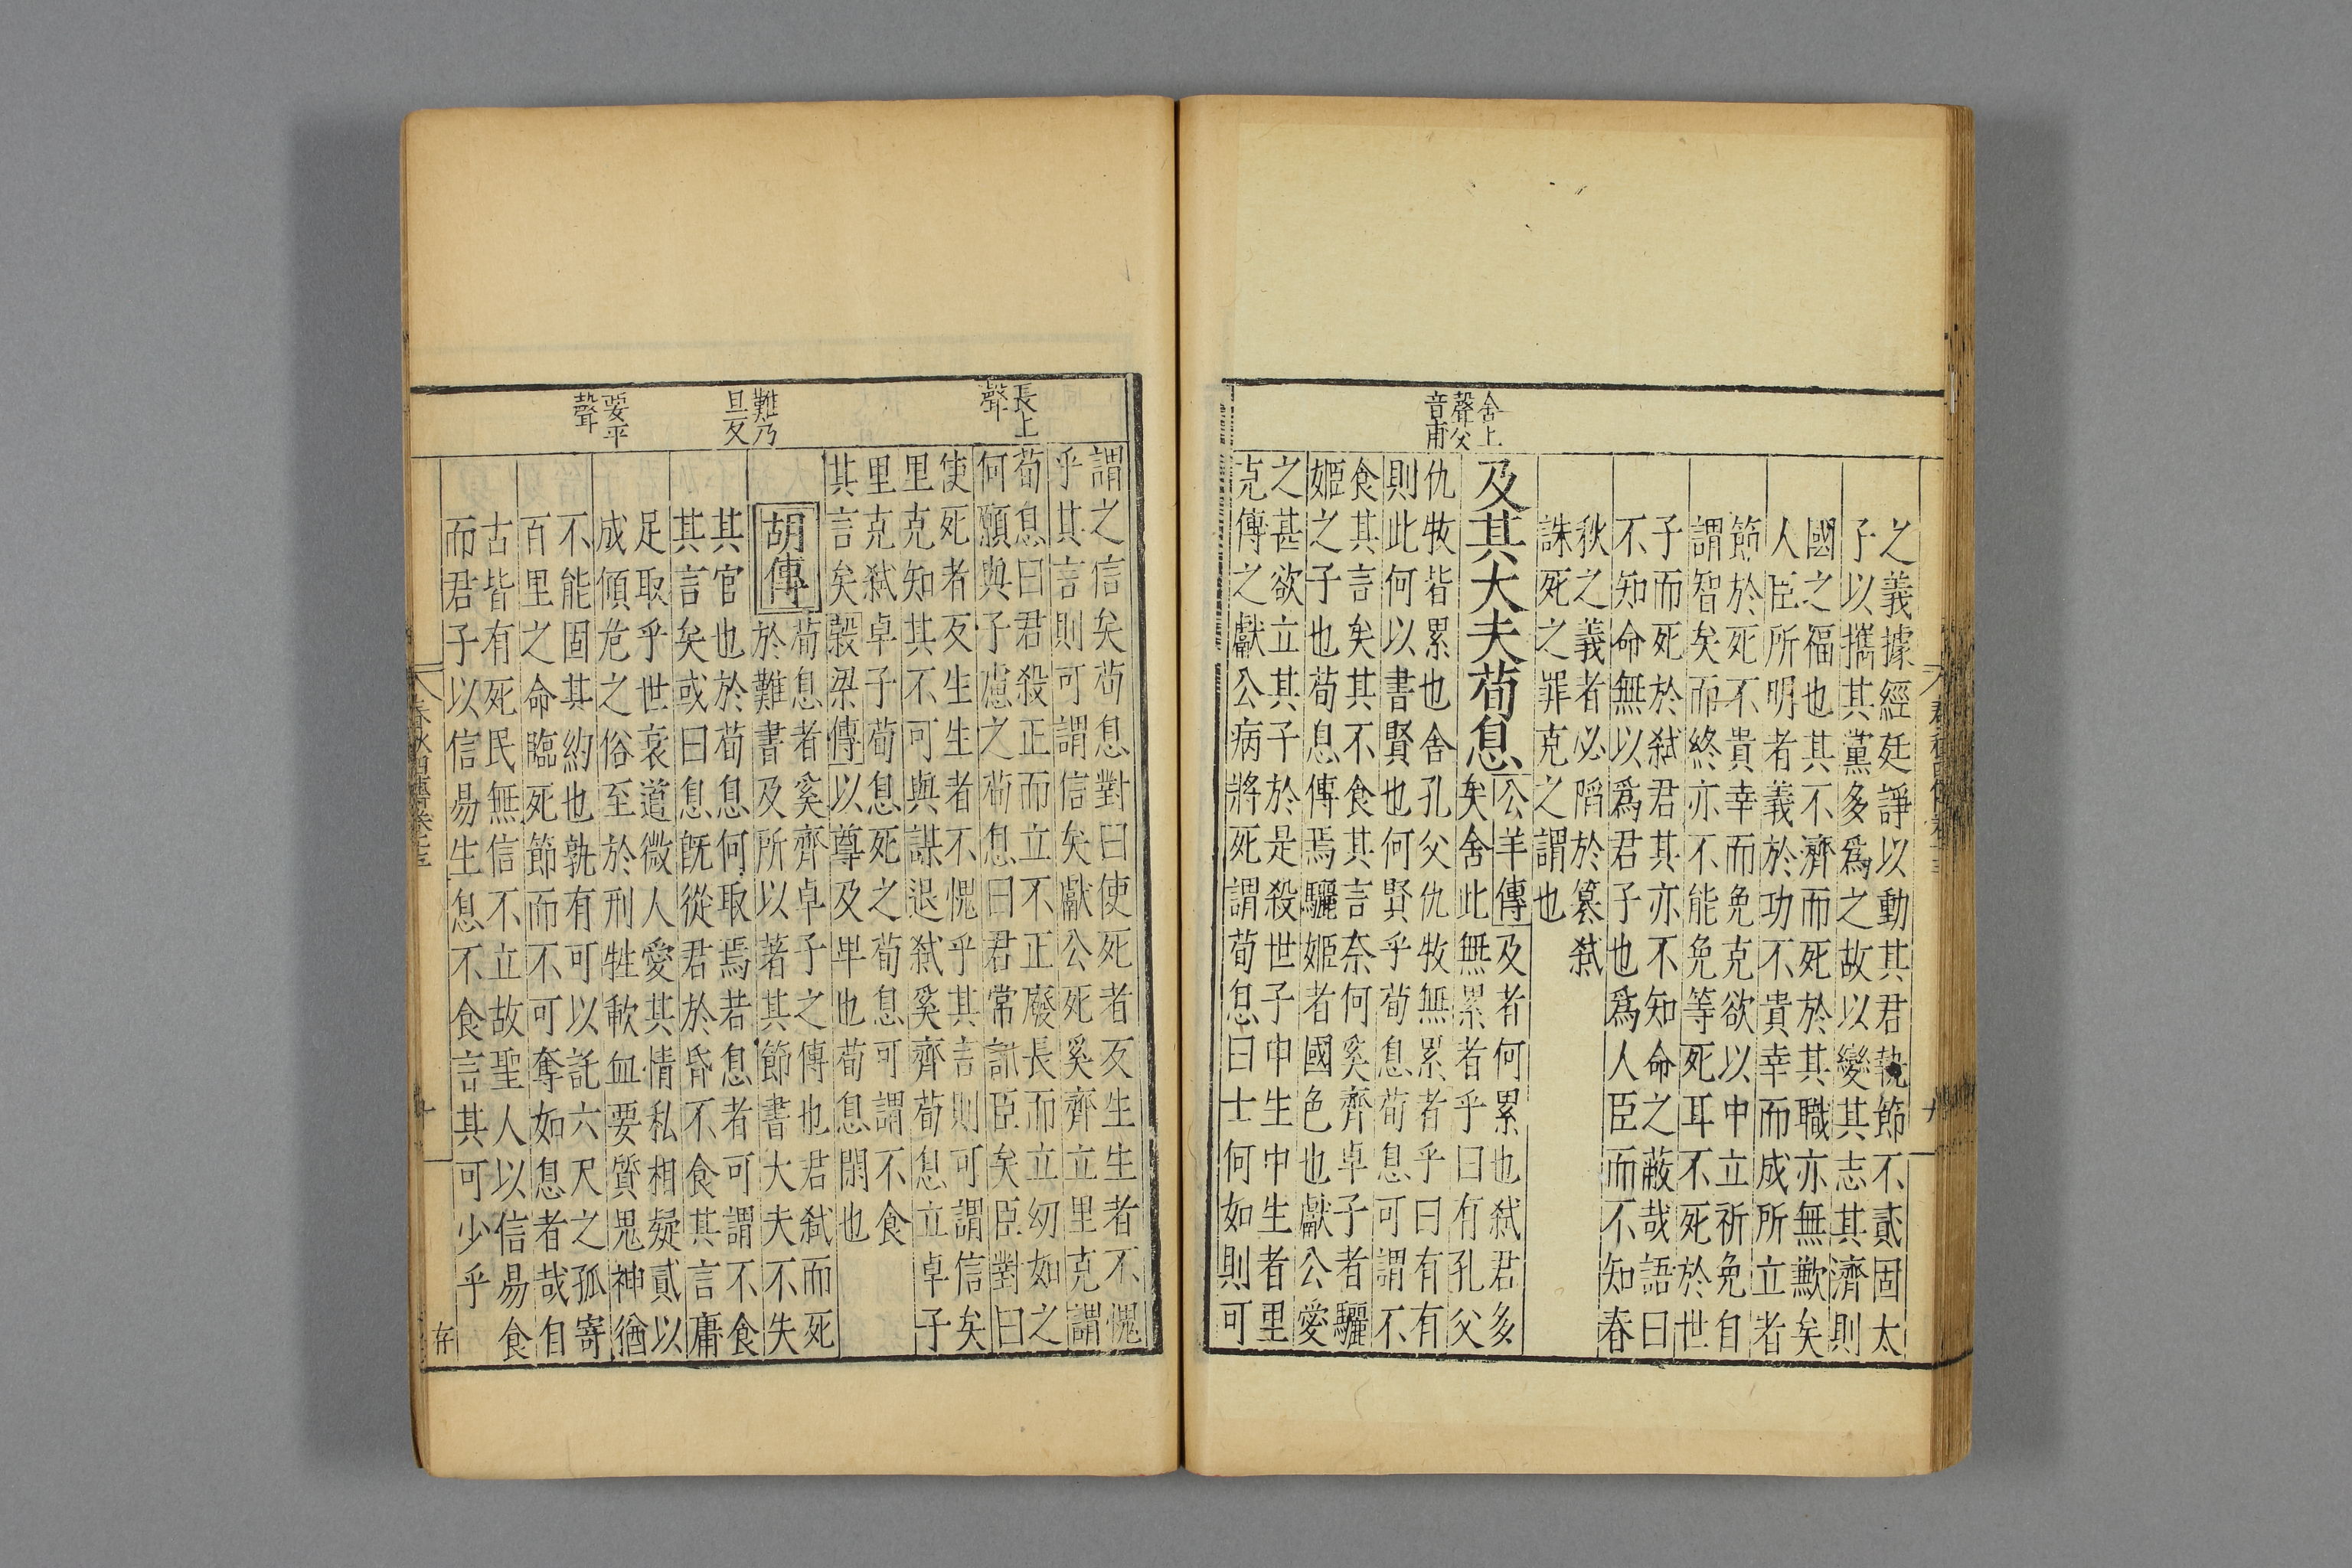 舍上
聲父
音甫
之義據經廷諍以動其君執節不貳固太
子以攜其黨多爲之故以變其志其濟則
國之福也其不濟而死於其職亦無歉矣
人臣所明者義於功不貴幸而成所立者
節於死不貴幸而免克欲以中立祈免自
謂智矣而終亦不能免等死耳不死於世
子而死於弑君其亦不知命之蔽哉語曰
不知命無以爲君子也爲人臣而不知春
秋之義者必陷於簒弑
誅死之罪克之謂也
及其大夫荀息
公羊傳及者何累也弑君多
矣舍此無累者乎曰有孔父
仇牧皆累也舍孔父仇牧無累者乎曰有有
則此何以書賢也何賢乎荀息荀息可謂不
食其言矣其不食其言奈何奚齊卓子者驪
姬之子也荀息傅焉驪姬者國色也獻公愛
之甚欲立其子於是殺世子申生申生者里
克傅之獻公病將死謂荀息曰士何如則可
長上
聲
難乃
旦反
要平
聲
謂之信矣荀息對曰使死者反生生者不愧
乎其言則可謂信矣獻公死奚齊立里克謂
荀息曰君殺正而立不正廢長而立幼如之
何願與子慮之荀息曰君常訊臣矣臣對曰
使死者反生生者不愧乎其言則可謂信矣
里克知其不可與謀退弑奚齊荀息立卓子
里克弑卓子荀息死之荀息可謂不食
其言矣穀梁傳以尊及卑也荀息閑也
胡傳
荀息者奚齊卓子之傅也君弑而死
於難書及所以著其節書大夫不失
其官也於荀息何取焉若息者可謂不食
其言矣或曰息旣從君於昏不食其言庸
足取乎世衰道微人愛其情私相疑貳以
成傾危之俗至於刑牲歃血要質鬼神猶
不能固其約也孰有可以託六尺之孤寄
百里之命臨死節而不可奪如息者哉自
古皆有死民無信不立故聖人以信易食
而君子以信易生息不食言其可少乎